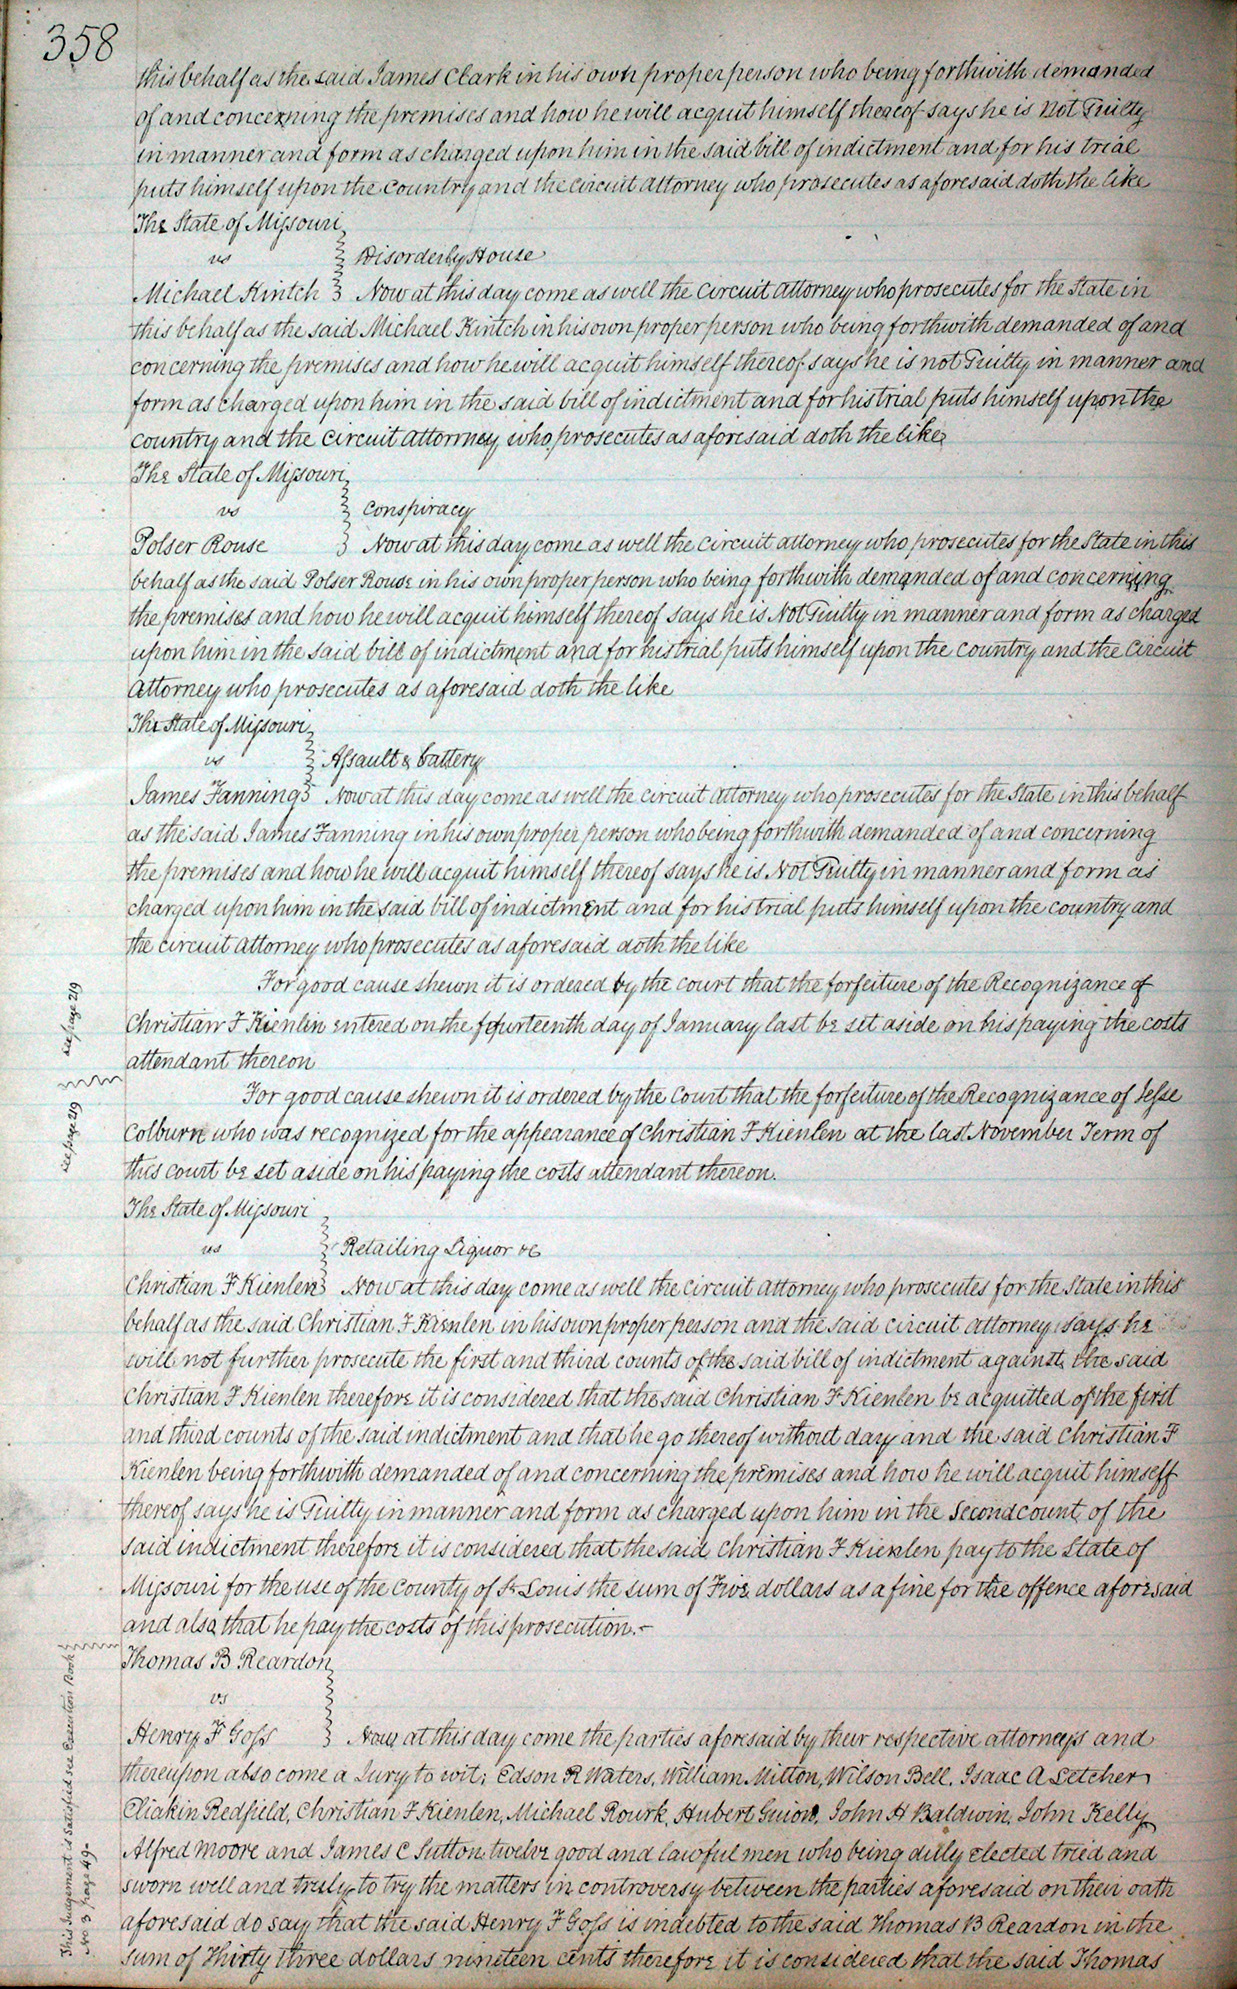 358
this behalf as the said James Clark in his own proper person who being forthwith demanded
of and concerning the premises and how he will acquit himself thereof says he is Not Guilty
in manner and form as charged upon him in the said bill of indictment and for his trial
puts himself upon the country and the circuit attorney who prosecutes as aforesaid doth the like
The State of Missouri
vs } Disorderly House
Michael Kintch } Now at this day come as well the circuit attorney who prosecutes for the State in
this behalf as the said Michael Kintch in his own proper person who being forthwith demanded of and
concerning the premises and how he will acquit himself thereof says he is not Guilty in manner and
form as charged upon him in the said bill of indictment and for his trial puts himself upon the
country and the circuit attorney who prosecutes as aforesaid doth the like
The State of Missouri
vs } Conspiracy
Polser Rouse } Now at this day come as well the circuit attorney who prosecutes for the State in this
behalf as the said Polser Rouse in his own proper person who being forthwith demanded of and concerning
the premises and how he will acquit himself thereof says he is Not Guilty in manner and form as charged
upon him in the said bill of indictment and for his trial puts himself upon the country and the circuit
attorney who prosecutes as aforesaid doth the like
The State of Missouri
vs } Assault & battery
James Fanning } Now at this day come as well the circuit attorney who prosecutes for the State in this behalf
as the said James Fanning in his own proper person who being forthwith demanded of and concerning
the premises and how he will acquit himself thereof says he is Not Guilty in manner and form as
charged upon him in the said bill of indictment and for his trial puts himself upon the country and
the circuit attorney who prosecutes as aforesaid doth the like
see page 219
For good cause shewn it is ordered by the court that the forfeiture of the Recognizance of
Christian F Kienlen entered on the fourteenth day of January last be set aside on his paying the costs
attendant thereon
see page 219
For good cause shewn it is ordered by the Court that the forfeiture of the Recognizance of Jesse
Colburn who was recognized for the appearance of Christian F Kienlen at the last November Term of
this court be set aside on his paying the costs attendant thereon.
The State of Missouri
vs } Retailing Liquor &c
Christian F Kienlen } Now at this day come as well the circuit attorney who prosecutes for the State in this
behalf as the said Christian F Kienlen in his own proper person and the said circuit attorney says he
will not further prosecute the first and third counts of the said bill of indictment against the said
Christian F Kienlen therefore it is considered that the said Christian F Kienlen be acquitted of the first
and third counts of the said indictment and that he go thereof without day and the said Christian F
Kienlen being forthwith demanded of and concerning the premises and how he will acquit himself
thereof says he is Guilty in manner and form as charged upon him in the Second count of the
said indictment therefore it is considered that the said Christian F Kienlen pay to the State of
Missouri for the use of the County of St Louis the sum of Five dollars as a fine for the offence aforesaid
and also that he pay the costs of this prosecution.-
This Judgement is Satisfied see Execution Book
No 3 page 49-
Thomas B Reardon
vs
Henry F Goss } Now at this day come the parties aforesaid by their respective attorneys and
thereupon also come a Jury to wit; Edson R Waters, William Mitton, Wilson Bell, Isaac A Letcher
Eliakin Redfield, Christian F Kienlen, Michael Rourk, Hubert Guion, John H Baldwin, John Kelly
Alfred Moore and James C Sutton twelve good and lawful men who being duly elected tried and
sworn well and truly to try the matters in controversy between the parties aforesaid on their oath
aforesaid do say that the said Henry F Goss is indebted to the said Thomas B Reardon in the
sum of Thirty three dollars nineteen cents therefore it is considered that the said Thomas